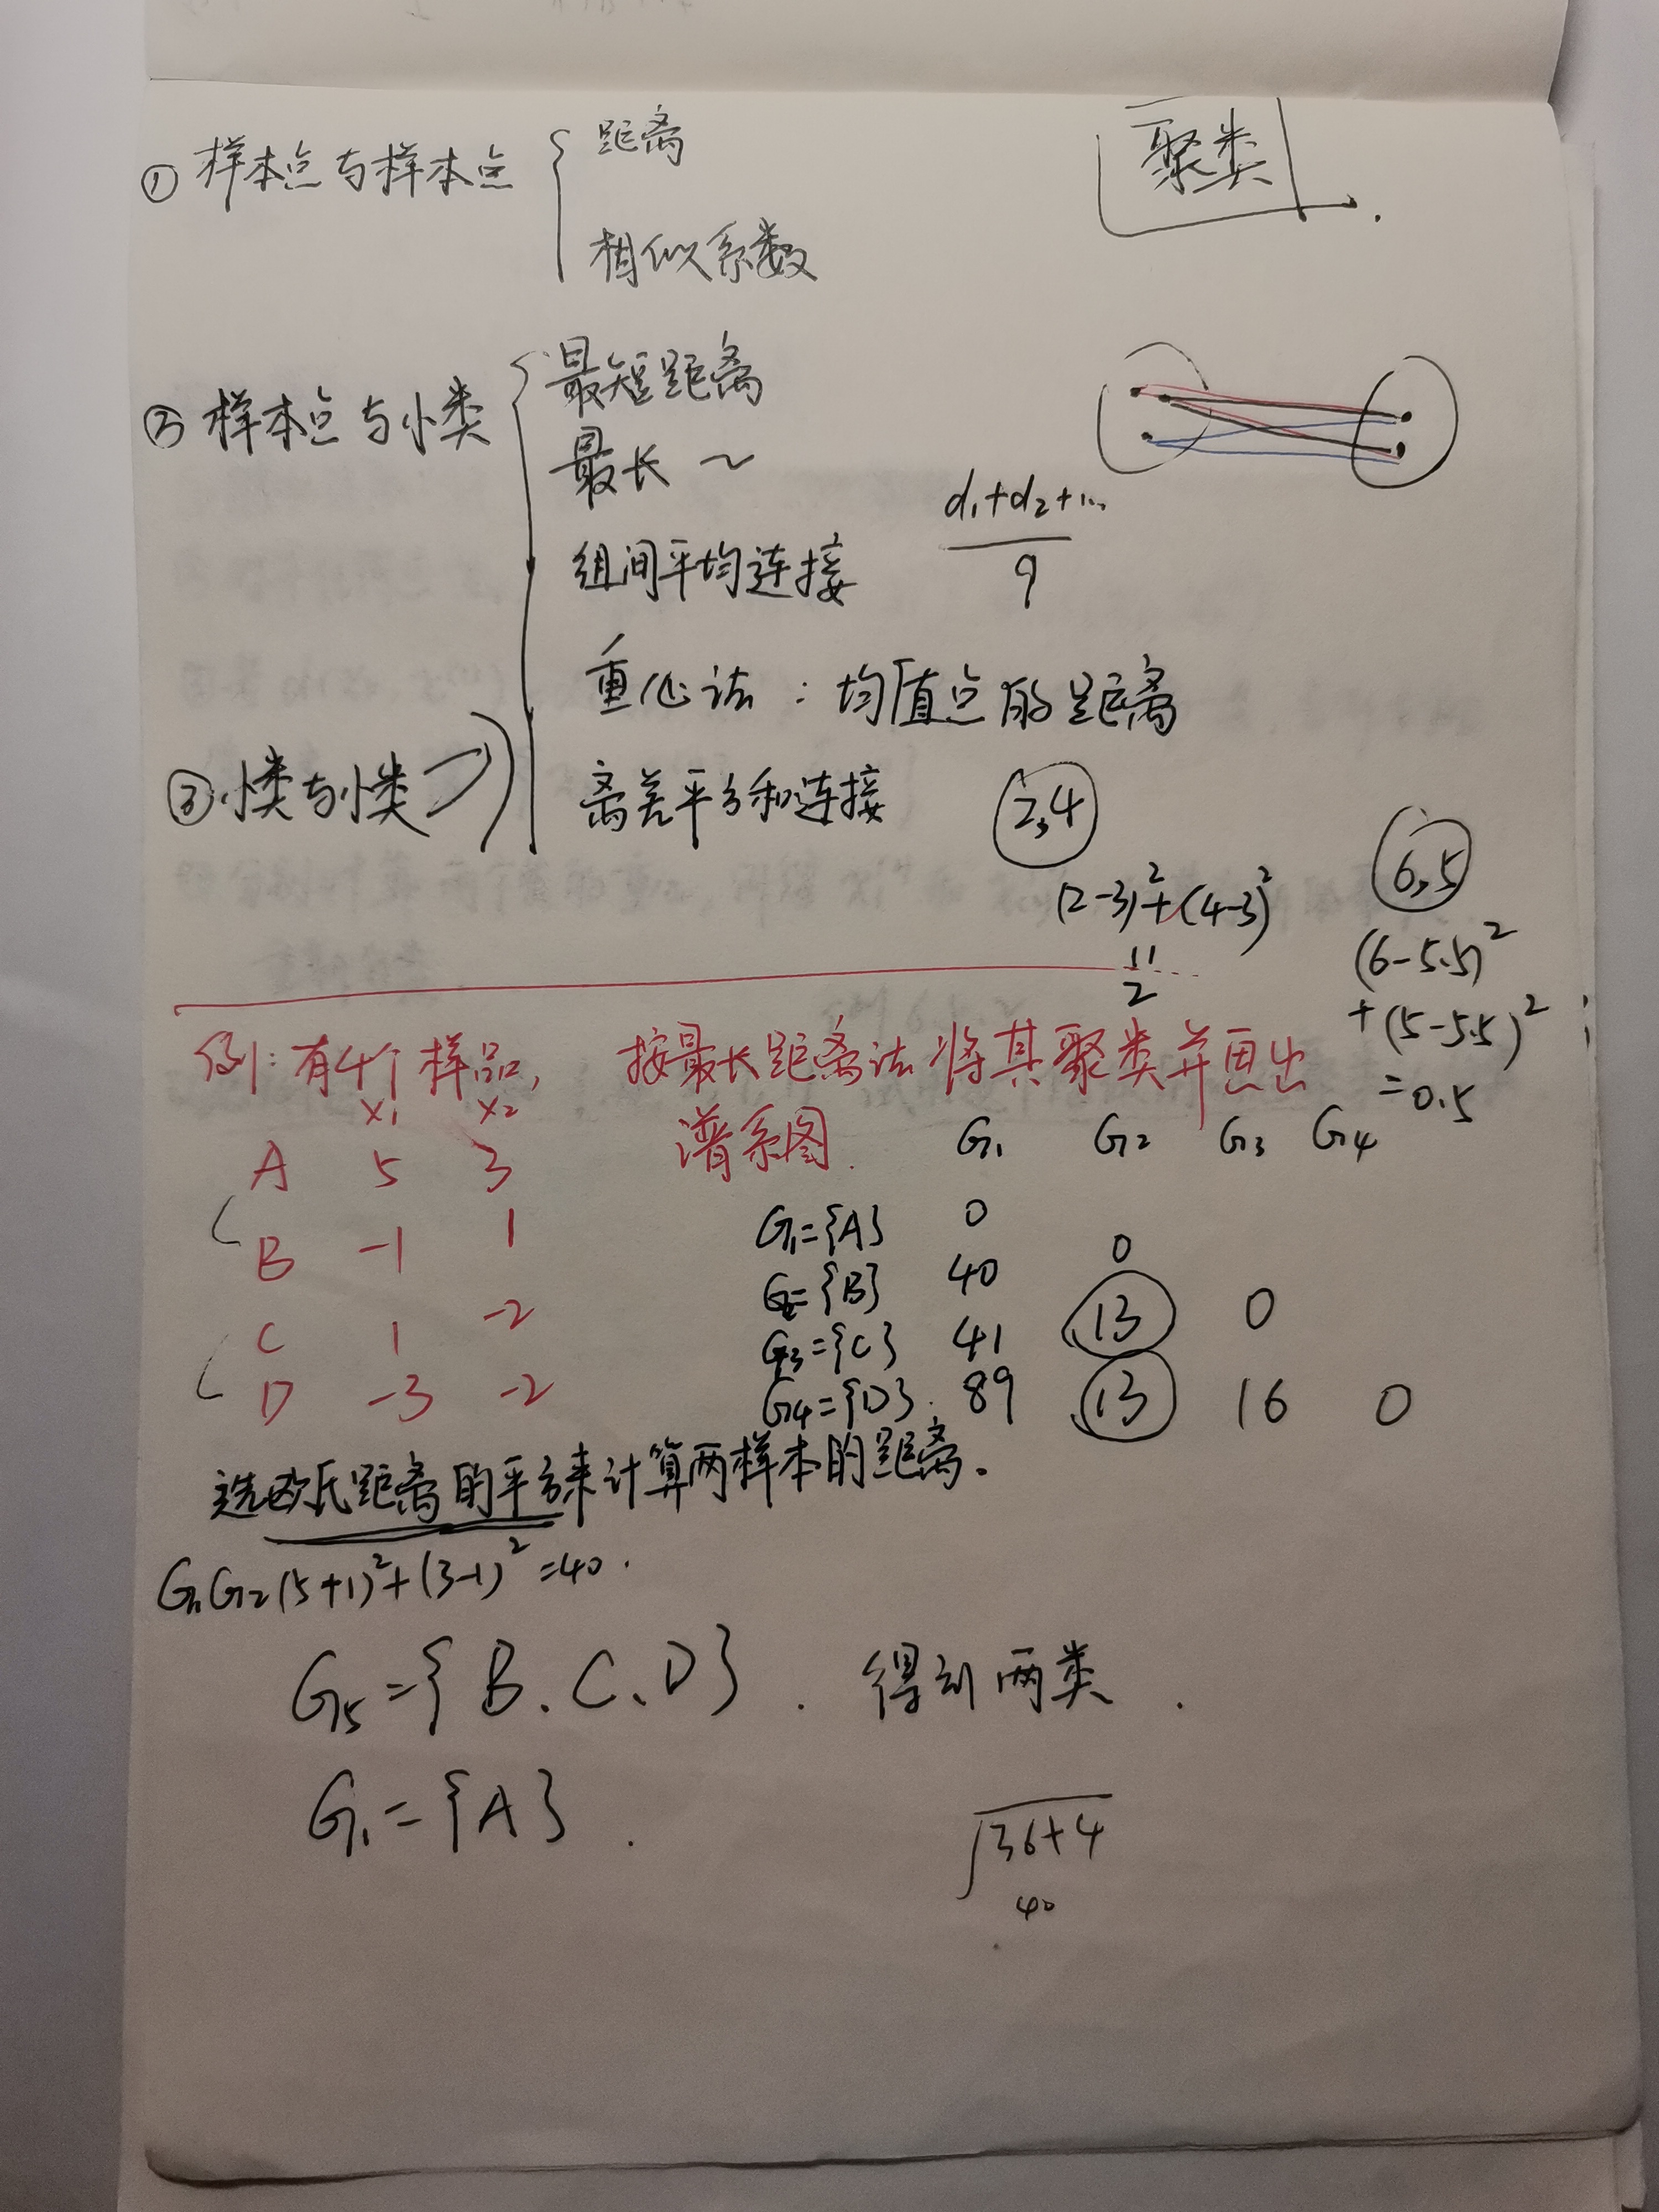 聚类
① 样本点与样本点 { 距离
相似系数
② 样本点与小类 { 最短距离
最长 ~
组间平均连接 (d₁+d₂+...)/9
重心法：均值点的距离
③ 小类与小类
离差平方和连接 2,4
6,5
(2-3)²+(4-3)²
=
2
(6-5.5)²
+(5-5.5)²
=0.5
例：有4个样品， 按最长距离法将其聚类并画出
谱系图.
x₁ x₂
A 5 3
B -1 1
C 1 -2
D -3 -2
G₁ G₂ G₃ G₄
G₁={A} 0
G₂={B} 40 0
G₃={C} 41 13 0
G₄={D}. 89 13 16 0
选欧氏距离的平方来计算两样本的距离。
G₁G₂(5+1)²+(3-1)²=40.
G₅={B、C、D}. 得到两类.
G₁={A}.
√36+4
40